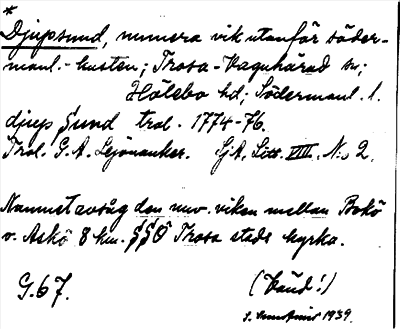 *
Djupsund, numera vik utanför söder-
manl.-kusten; Trosa-Vagnhärad sn;
Hölebo hd; Södermanl. l.
djup Sund trol. 1774-76.
Trol. G. A. Lejonanker. SjA, Litt. VIII, N:o 2.
Namnet avsåg den nuv. viken mellan Bokö
o. Askö 8 km. SSÖ Trosa stads kyrka.
G. 67. (Vänd!)
1939.